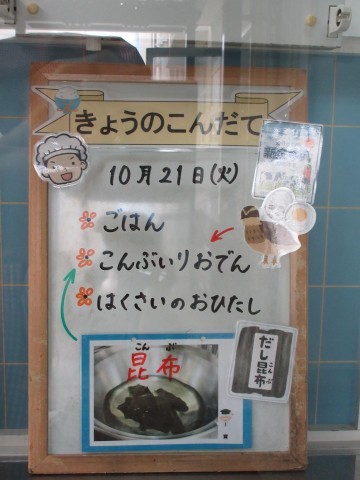 きょうのこんだて
10月21日(火)
ごはん
こんぶいりおでん
はくさいのおひたし
こんぶ
昆布
だし昆布
こんぶ